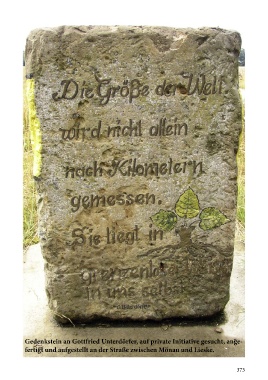 Die Größe der Welt
wird nicht allein
nach Kilometern
gemessen.
Sie liegt in
grenzenlos
in uns selbst
Gedenkstein an Gottfried Unterdörfer, auf private Initiative gesucht, ange-
fertigt und aufgestellt an der Straße zwischen Mönau und Lieske.
375